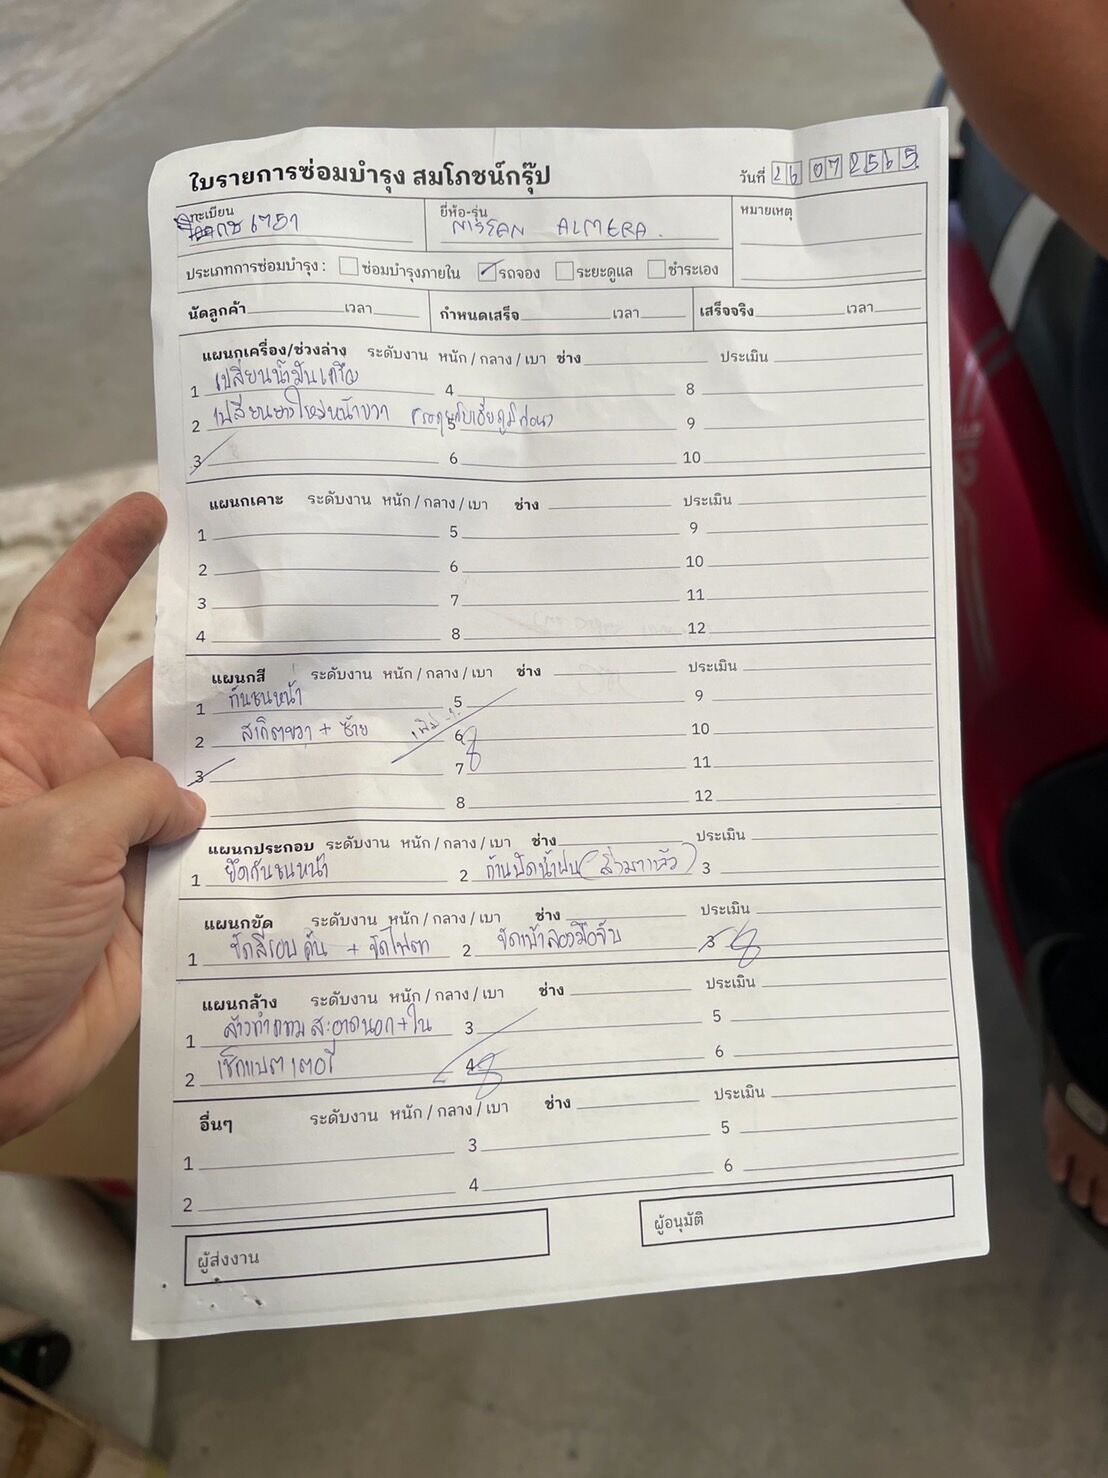 ใบรายการซ่อมบำรุง สมโภชน์กรุ๊ป
วันที่ 26 07 2565
ทะเบียน
ยี่ห้อ-รุ่น NISSAN ALMERA
หมายเหตุ
ประเภทการซ่อมบำรุง : ซ่อมบำรุงภายใน รถจอง ระยะดูแล ชำระเอง
นัดลูกค้า เวลา กำหนดเสร็จ เวลา เสร็จจริง เวลา
แผนกเครื่อง/ช่วงล่าง ระดับงาน หนัก / กลาง / เบา ช่าง ประเมิน
1 เปลี่ยนน้ำมันเครื่อง 4 8
2 เปลี่ยนยางใหม่หน้าขวา 5 9
3 6 10
แผนกเคาะ ระดับงาน หนัก / กลาง / เบา ช่าง ประเมิน
1 5 9
2 6 10
3 7 11
4 8 12
แผนกสี ระดับงาน หนัก / กลาง / เบา ช่าง ประเมิน
1 กันชนหน้า 5 9
2 สเกิตขวา + ซ้าย 6 10
3 7 11
8 12
แผนกประกอบ ระดับงาน หนัก / กลาง / เบา ช่าง ประเมิน
1 ยึดกันชนหน้า 2 ก้านปัดน้ำฝน (สั่งมาแล้ว) 3
แผนกขัด ระดับงาน หนัก / กลาง / เบา ช่าง ประเมิน
1 ขัดสีรอบคัน + ขัดไฟตา 2 ขัดเบ้ารองมือจับ 3
แผนกล้าง ระดับงาน หนัก / กลาง / เบา ช่าง ประเมิน
1 ล้างทำความสะอาดนอก+ใน 3 5
2 เช็กแบตเตอรี่ 4 6
อื่นๆ ระดับงาน หนัก / กลาง / เบา ช่าง ประเมิน
1 3 5
2 4 6
ผู้ส่งงาน
ผู้อนุมัติ